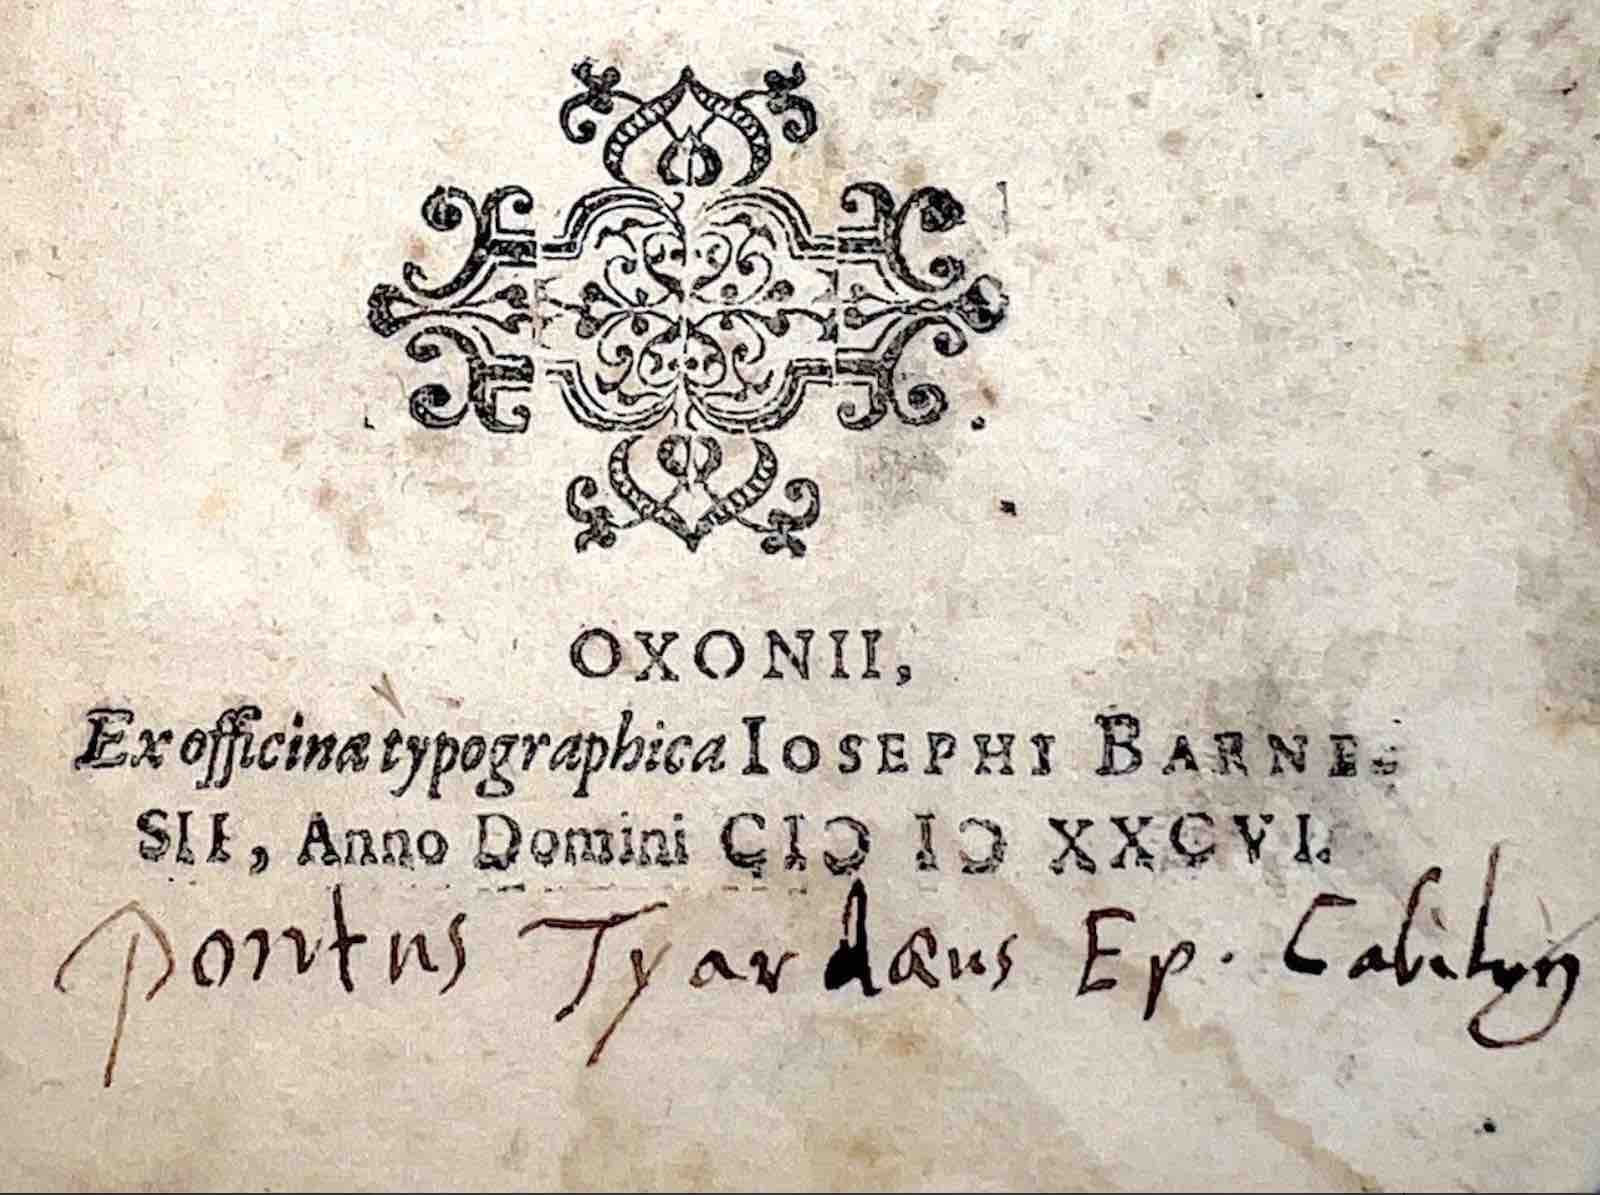 OXONII,
Ex officina typographica IOSEPHI BARNE-
SII, Anno Domini CIↃ IↃ XXCVI.
Pontus Tyardæus Ep. Cabilon